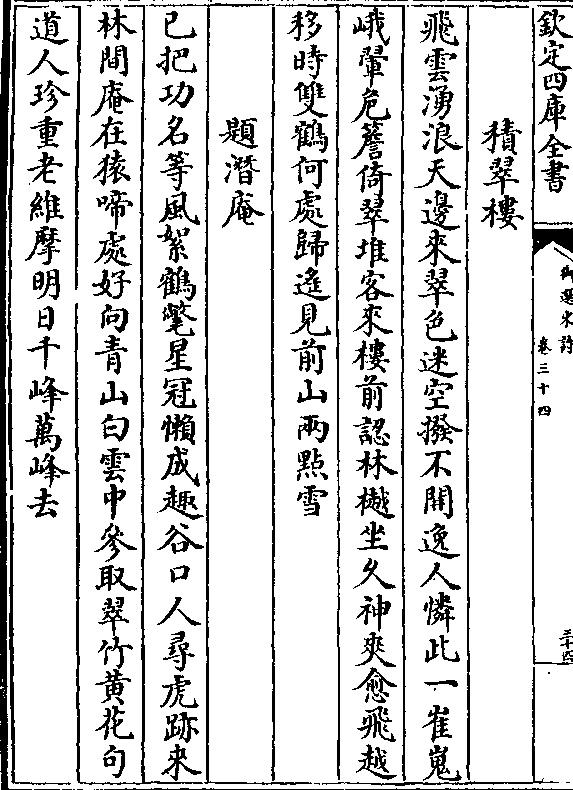 欽定四庫全書
御選宋詩
卷三十四
積翠樓
飛雲湧浪天邊來翠色迷空撥不開逸人憐此一崔嵬
峨翬危簷倚翠堆客來樓前認林樾坐久神爽愈飛越
移時雙鶴何處歸遙見前山兩點雪
題潛庵
已把功名等風絮鶴氅星冠懶成趣谷口人尋虎跡來
林間庵在猿啼處好向青山白雲中參取翠竹黃花句
道人珍重老維摩明日千峰萬峰去